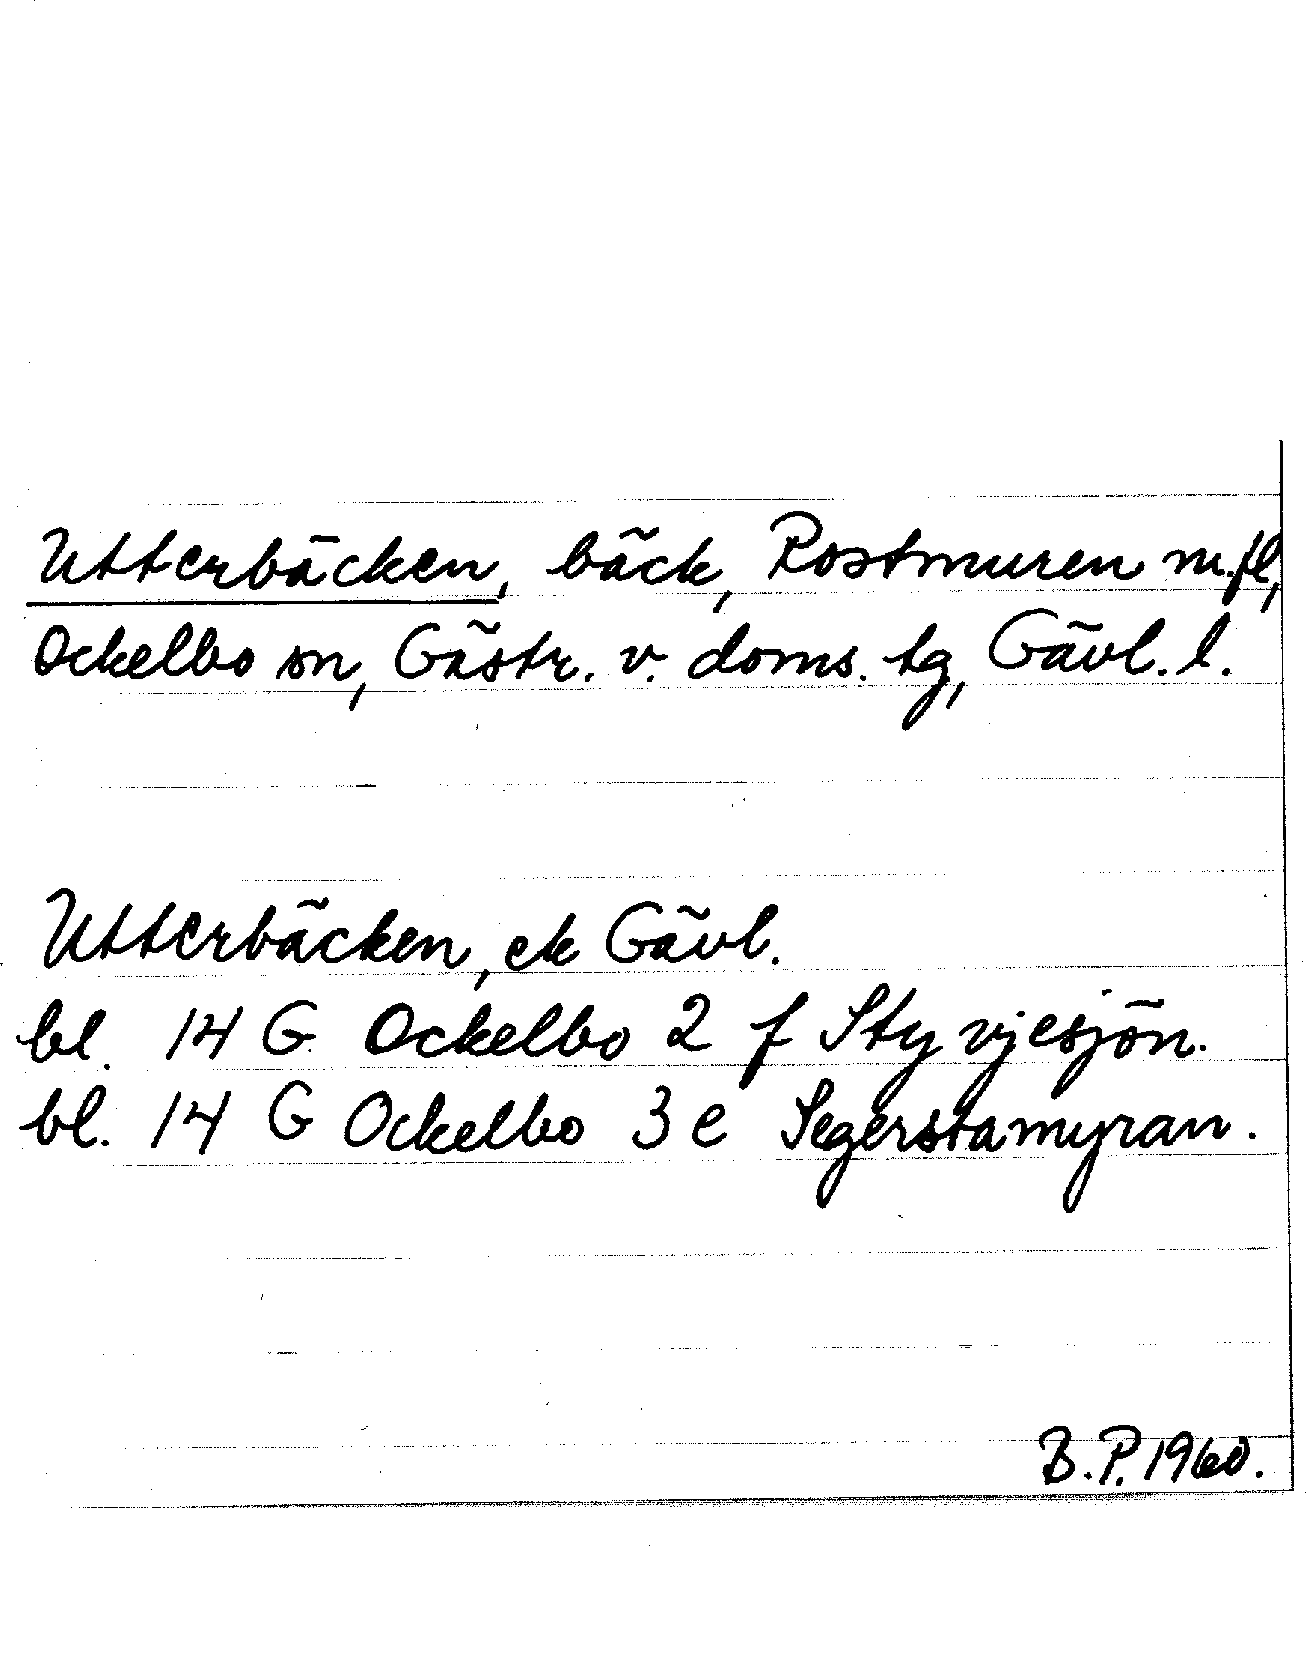 Utterbäcken, bäck, Rostmuren m.fl,
Ockelbo sn, Gästr. v. doms. tg, Gävl. l.
Utterbäcken, ek Gävl.
bl. 14 G Ockelbo 2 f Styvjesjön.
bl. 14 G Ockelbo 3 e Segerstamyran.
B.P. 1960.